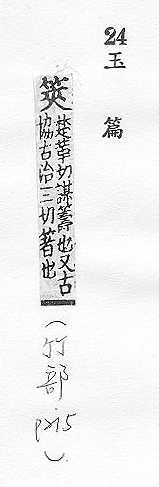 24 玉篇
筴
楚革切謀籌也又古
協古治三切著也
(竹部 p215)